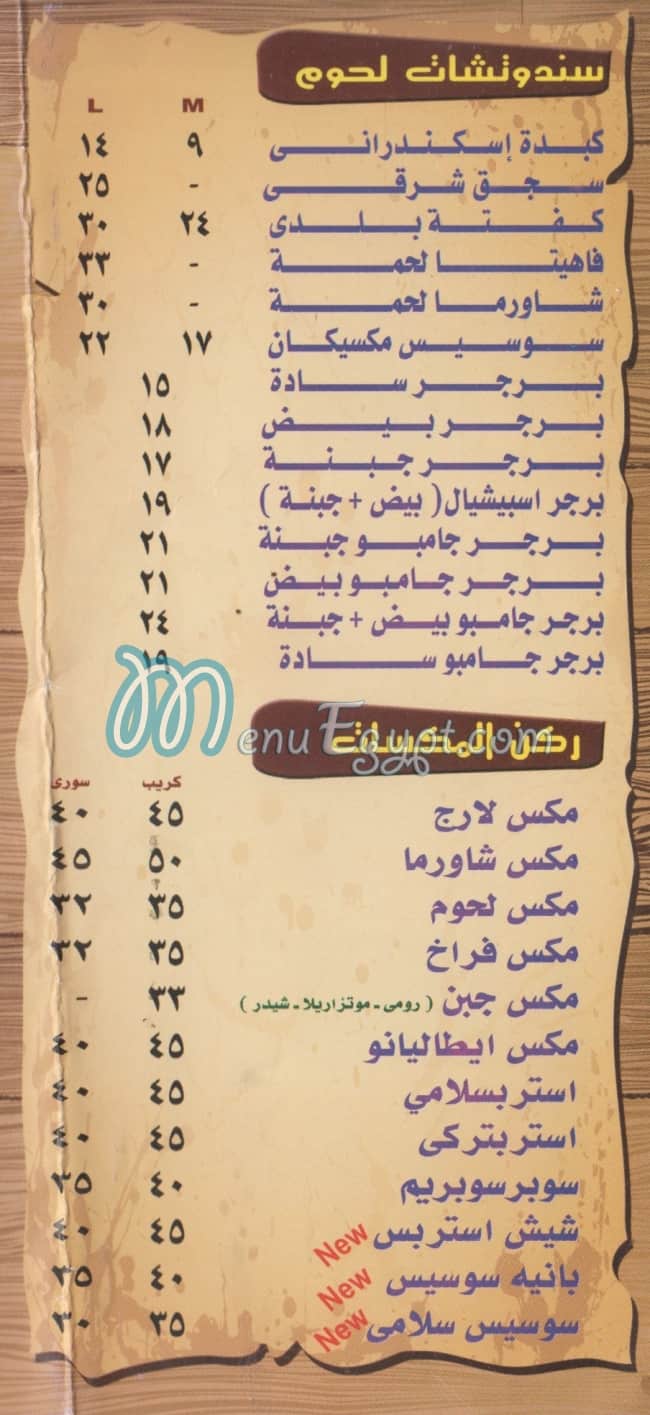 سندوتشات لحوم
M L
كبدة إسكندرانى ٩ ١٤
سجق شرقى - ٢٥
كفتة بلدى ٢٤ ٣٠
فاهيتا لحمة - ٣٣
شاورما لحمة - ٣٠
سوسيس مكسيكان ١٧ ٢٢
برجر سادة ١٥
برجر بيض ١٨
برجر جبنة ١٧
برجر اسبيشيال ( بيض + جبنة ) ١٩
برجر جامبو جبنة ٢١
برجر جامبو بيض ٢١
برجر جامبو بيض + جبنة ٢٤
برجر جامبو سادة ١٩
MenuEgypt.com
ركن المكسات
كريب سورى
مكس لارج ٤٥ ٤٠
مكس شاورما ٥٠ ٤٥
مكس لحوم ٣٥ ٣٢
مكس فراخ ٣٥ ٣٢
مكس جبن ( رومى - موتزاريلا - شيدر ) ٣٣ -
مكس ايطاليانو ٤٥ ٤٠
استربسلامي ٤٥ ٤٠
استربتركى ٤٥ ٤٠
سوبرسوبريم ٤٠ ٣٥
شيش استربس New ٤٥ ٤٠
بانيه سوسيس New ٤٠ ٣٥
سوسيس سلامى New ٣٥ ٣٠